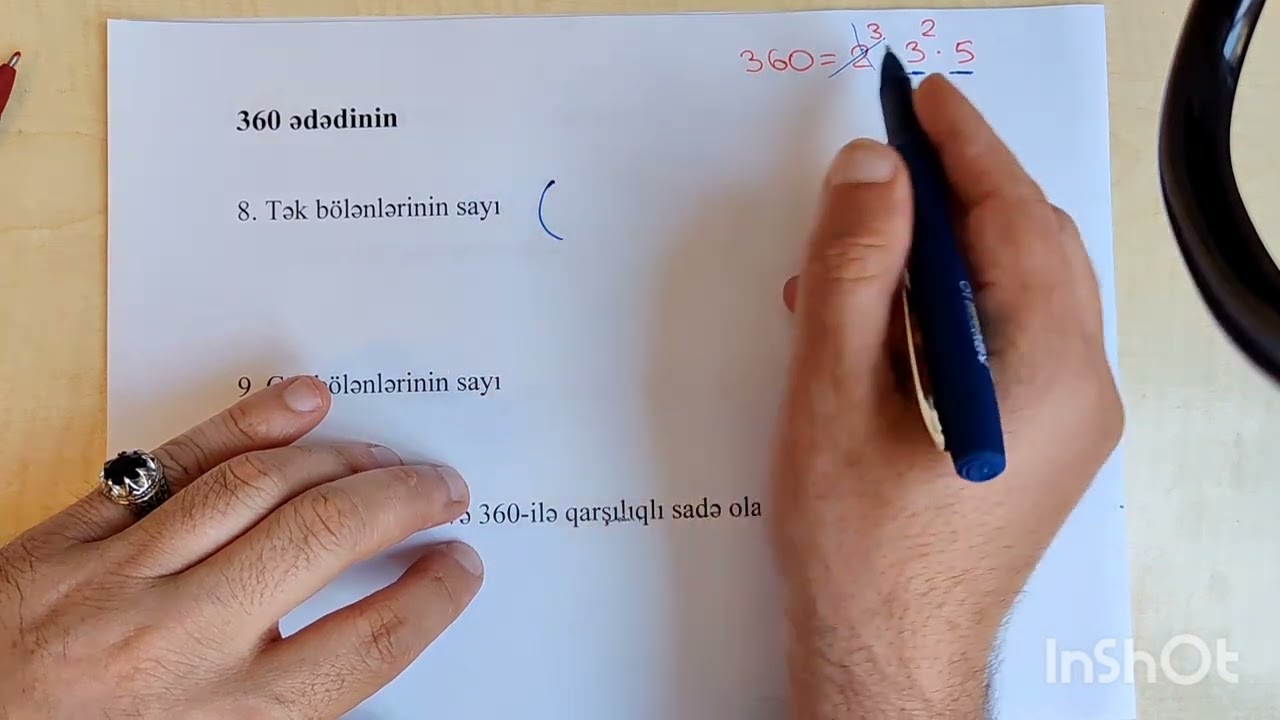 360 = 2³ · 3² · 5
360 ədədinin
8. Tək bölənlərinin sayı (
9. bölənlərinin sayı
360-ilə qarşılıqlı sadə ola
InShOt